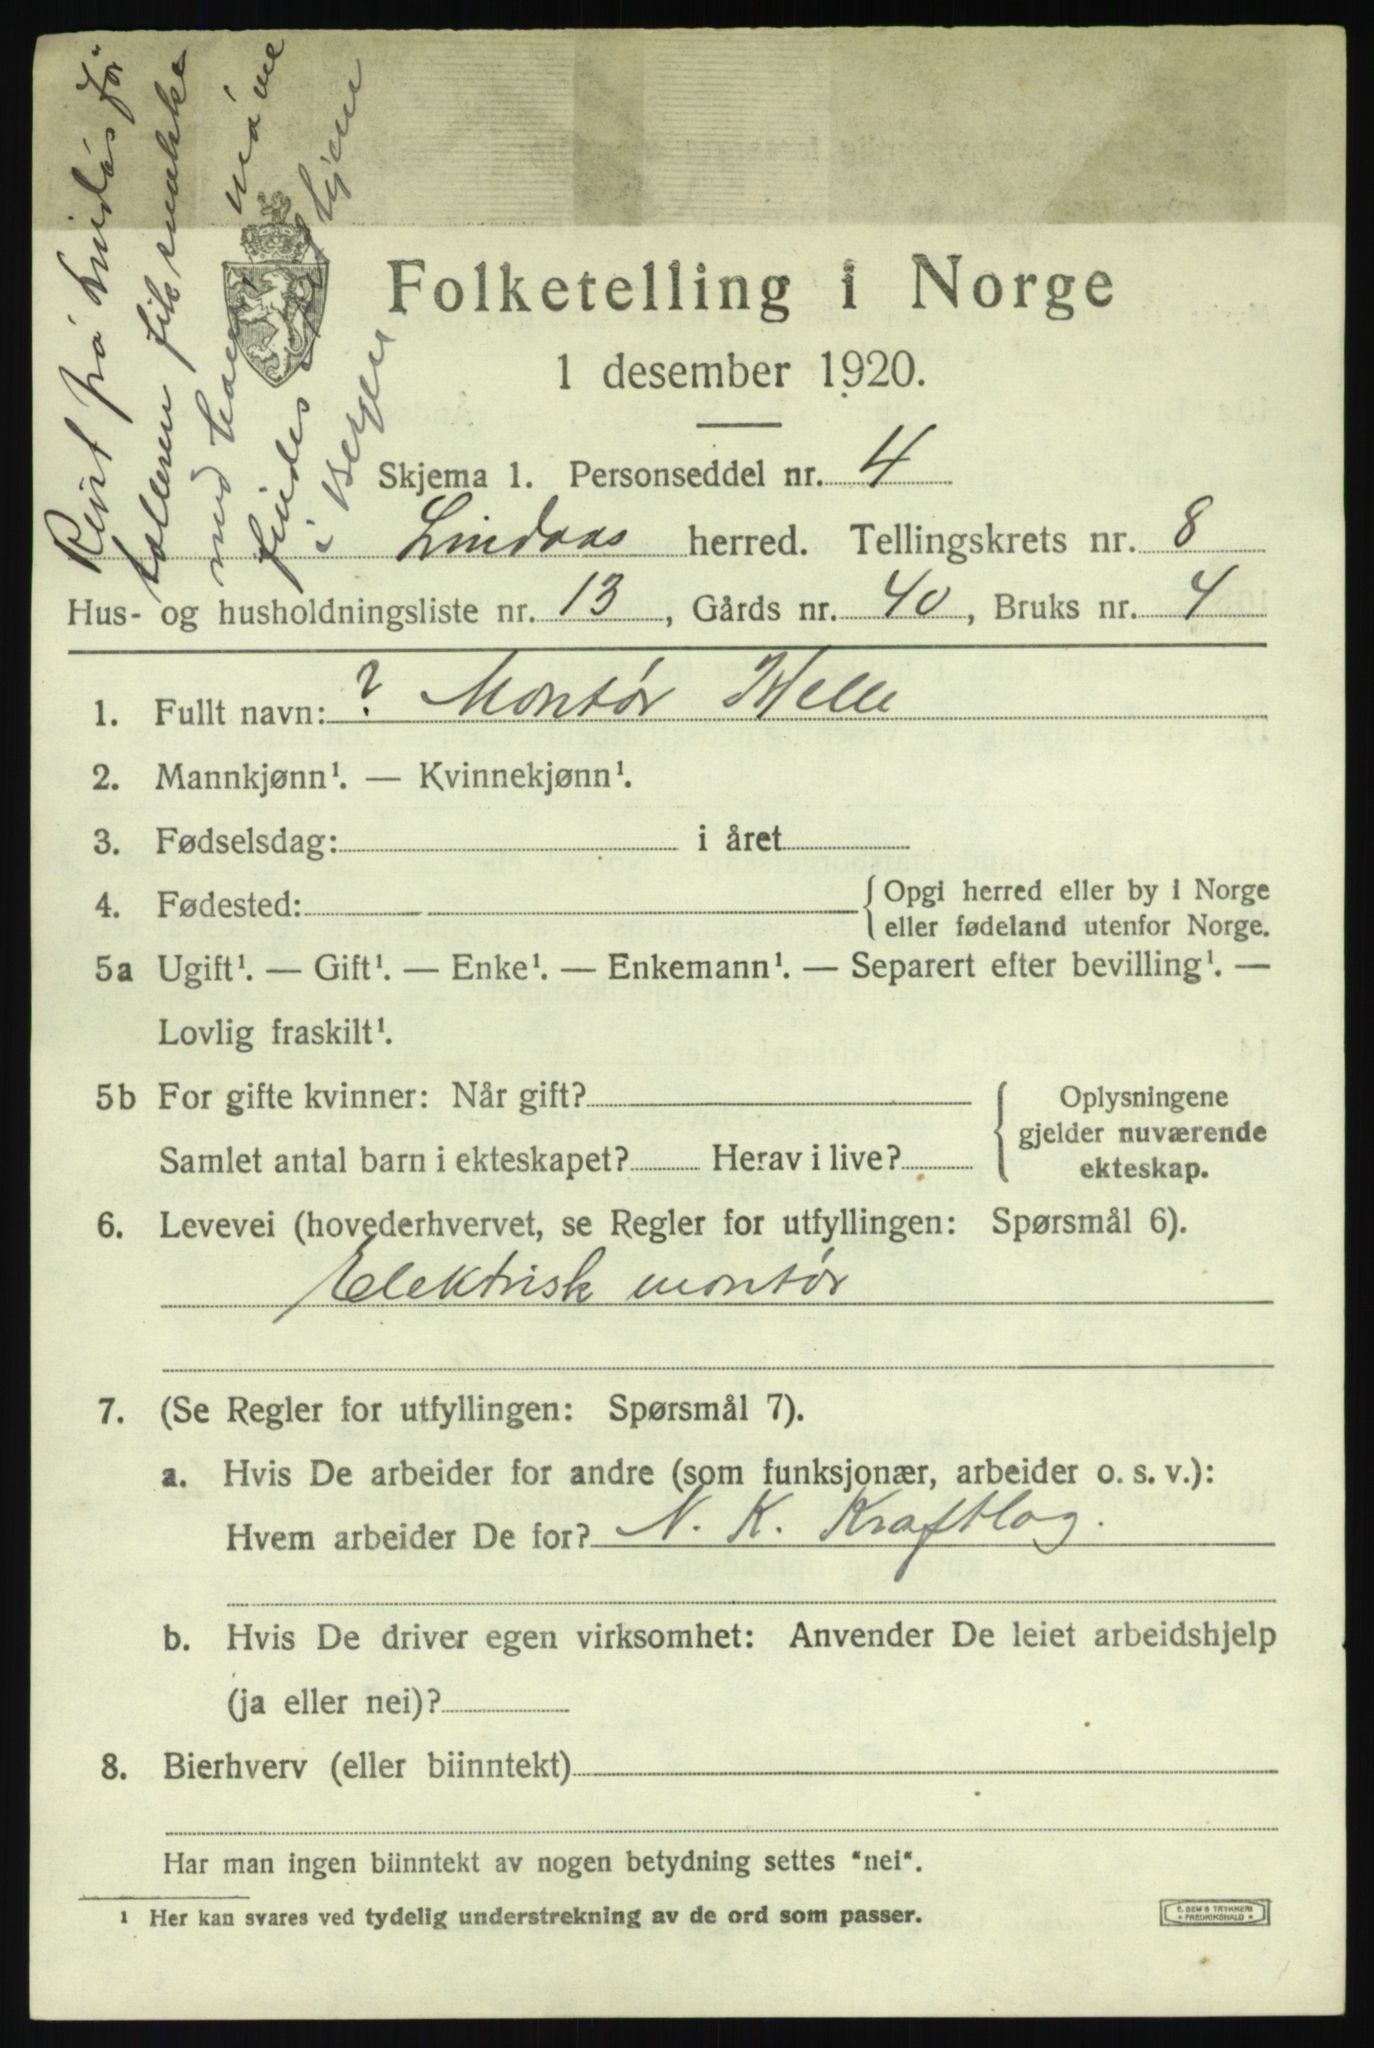 Reist på Lindås før
telleren fik snakke
med ham, må vel
findes hjem
i Bergen
Folketelling i Norge
1 desember 1920.
Skjema 1. Personseddel nr. 4
Lindaas herred. Tellingskrets nr. 8
Hus- og husholdningsliste nr. 13, Gårds nr. 40, Bruks nr. 4
1. Fullt navn: ? Montør Helle
2. Mannkjønn¹. — Kvinnekjønn¹.
3. Fødselsdag: i året
4. Fødested: { Opgi herred eller by i Norge
eller fødeland utenfor Norge.
5a Ugift¹. — Gift¹. — Enke¹. — Enkemann¹. — Separert efter bevilling¹. —
Lovlig fraskilt¹.
5b For gifte kvinner: Når gift?
Samlet antal barn i ekteskapet? Herav i live?
{ Oplysningene
gjelder nuværende
ekteskap.
6. Levevei (hovederhvervet, se Regler for utfyllingen: Spørsmål 6).
Elektrisk montør
7. (Se Regler for utfyllingen: Spørsmål 7).
a. Hvis De arbeider for andre (som funksjonær, arbeider o. s. v.):
Hvem arbeider De for? N. K. Kraftlag.
b. Hvis De driver egen virksomhet: Anvender De leiet arbeidshjelp
(ja eller nei)?
8. Bierhverv (eller biinntekt)
Har man ingen biinntekt av nogen betydning settes "nei".
¹ Her kan svares ved tydelig understrekning av de ord som passer.
E. SEM'S TRYKKERI
FREDRIKSHALD